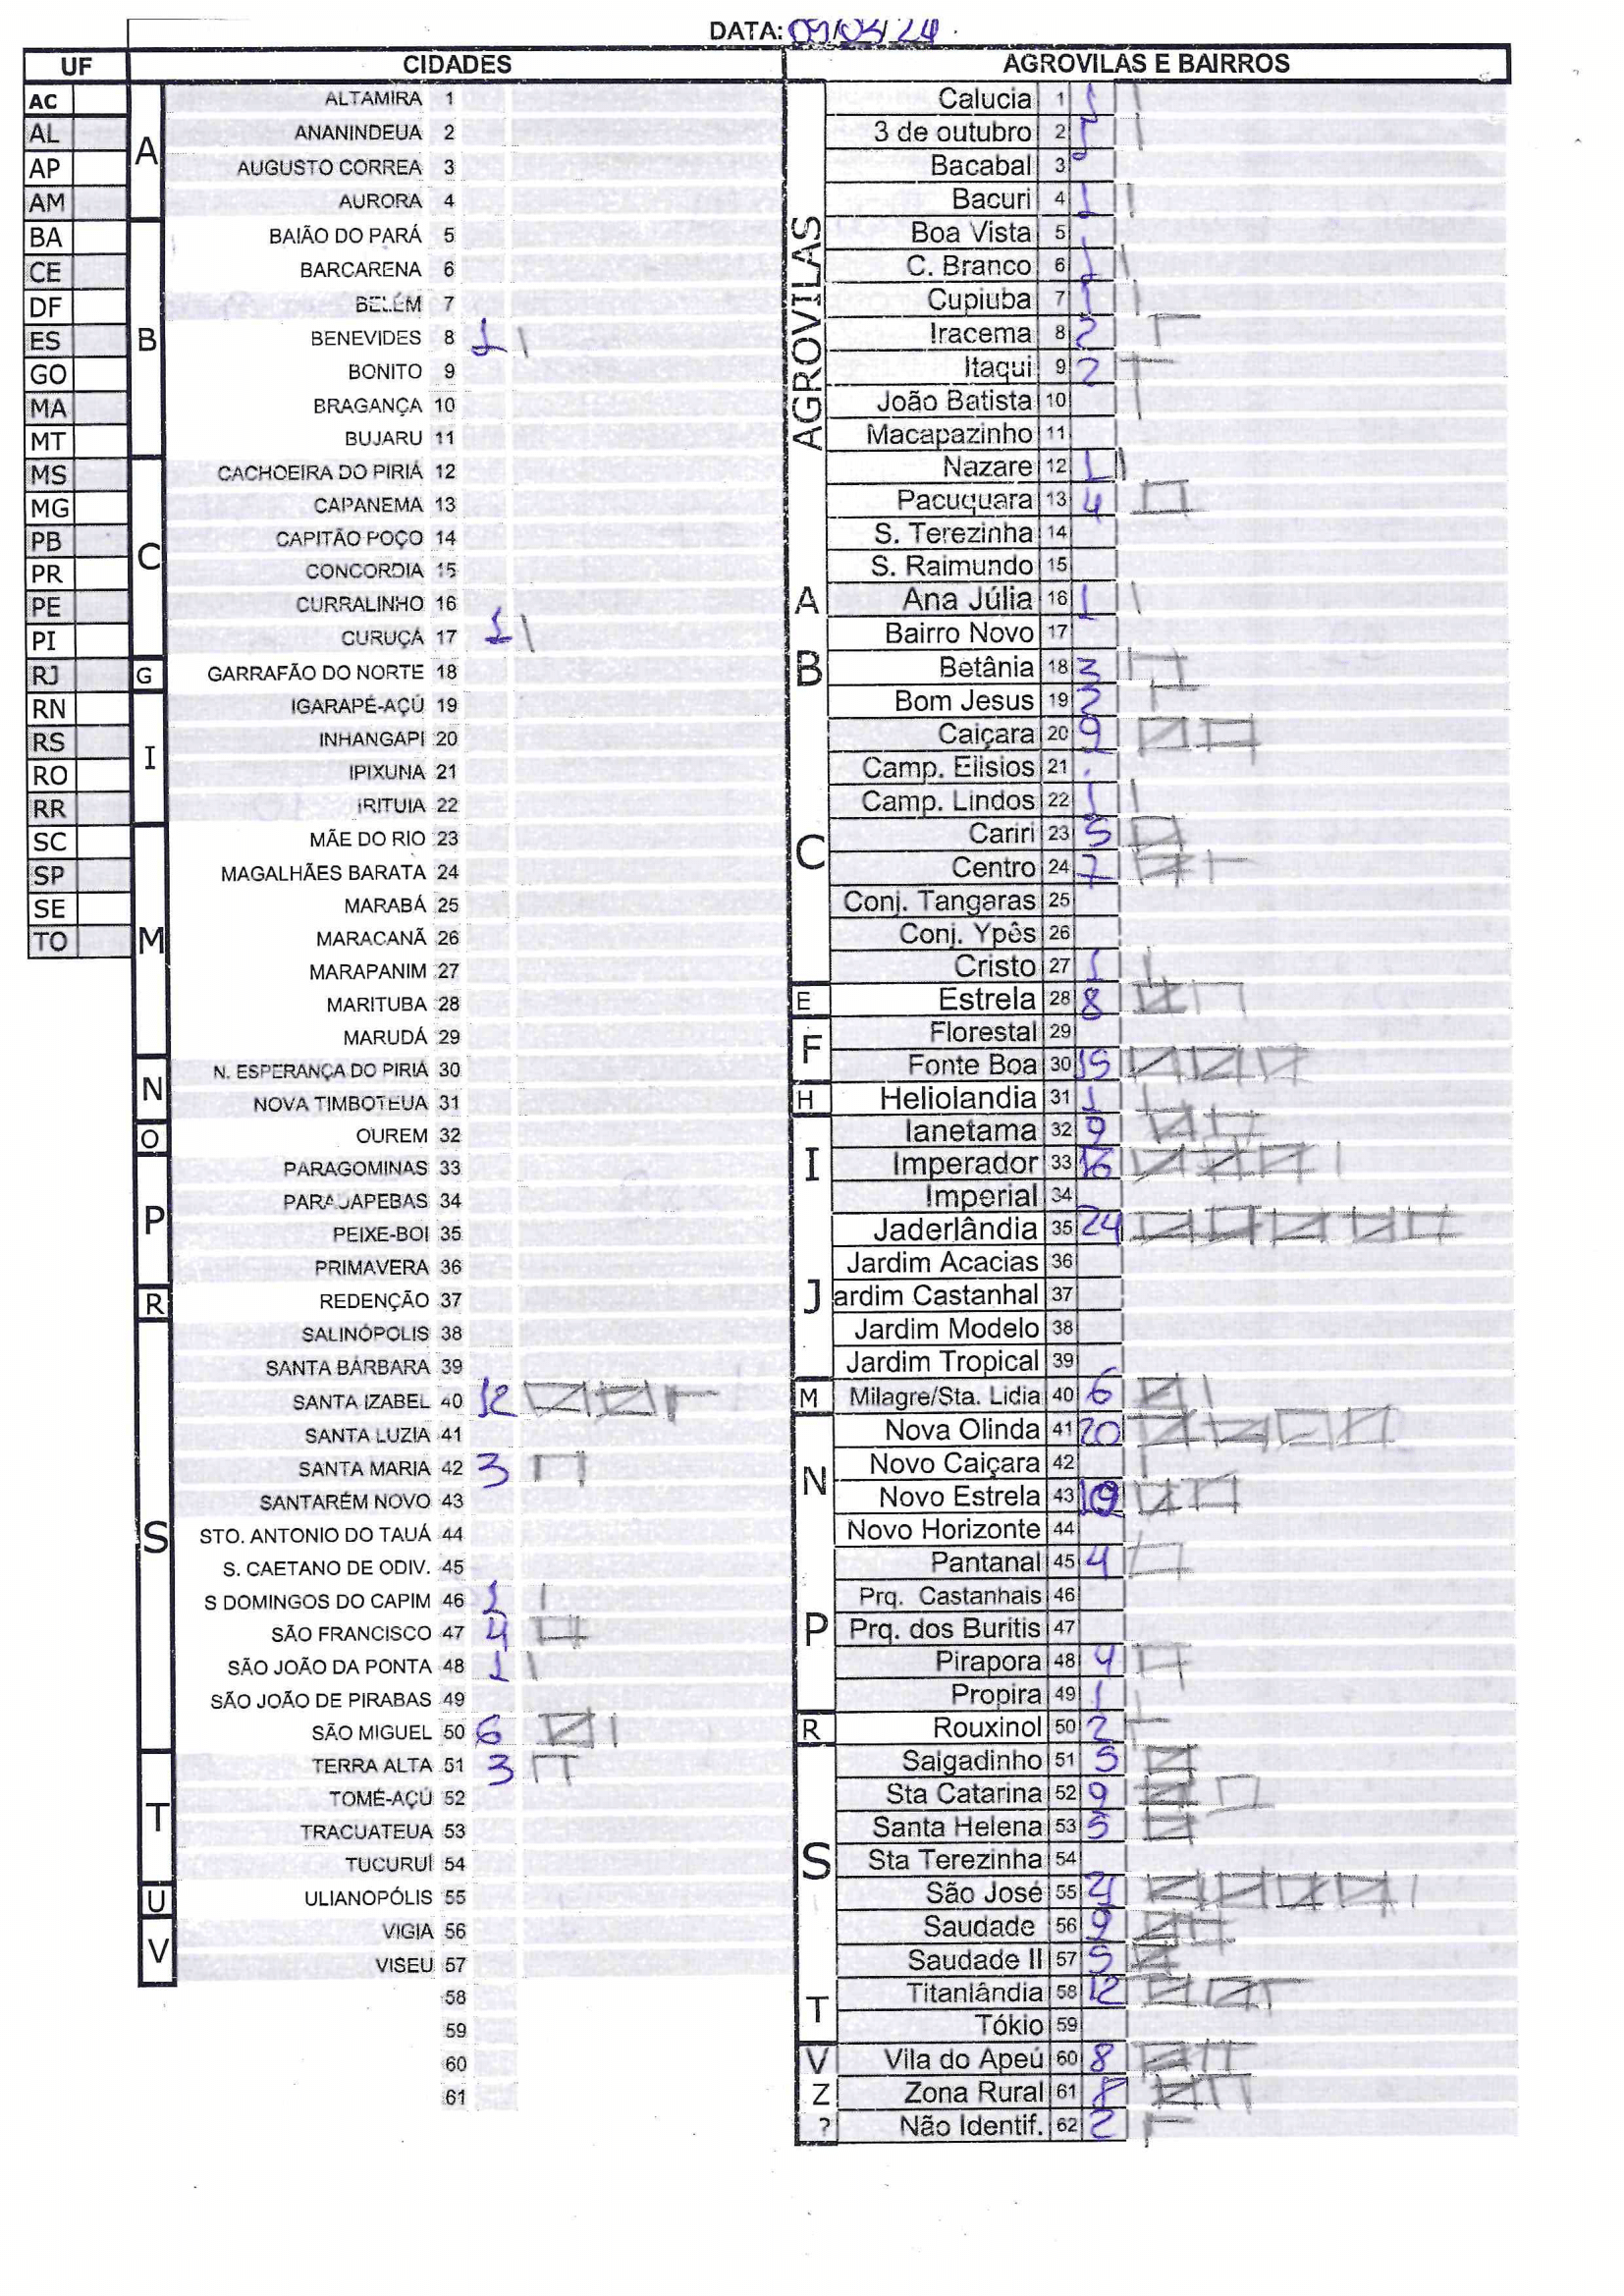 DATA: 09/03/24
UF CIDADES AGROVILAS E BAIRROS
AC
AL
AP
AM
BA
CE
DF
ES
GO
MA
MT
MS
MG
PB
PR
PE
PI
RJ
RN
RS
RO
RR
SC
SP
SE
TO
A
ALTAMIRA 1
ANANINDEUA 2
AUGUSTO CORREA 3
AURORA 4
B
BAIÃO DO PARÁ 5
BARCARENA 6
BELÉM 7
BENEVIDES 8 1
BONITO 9
BRAGANÇA 10
BUJARU 11
C
CACHOEIRA DO PIRIÁ 12
CAPANEMA 13
CAPITÃO POÇO 14
CONCORDIA 15
CURRALINHO 16
CURUÇÁ 17 1
G
GARRAFÃO DO NORTE 18
I
IGARAPÉ-AÇÚ 19
INHANGAPI 20
IPIXUNA 21
IRITUIA 22
M
MÃE DO RIO 23
MAGALHÃES BARATA 24
MARABÁ 25
MARACANÃ 26
MARAPANIM 27
MARITUBA 28
MARUDÁ 29
N
N. ESPERANÇA DO PIRIÁ 30
NOVA TIMBOTEUA 31
O
OUREM 32
P
PARAGOMINAS 33
PARAUAPEBAS 34
PEIXE-BOI 35
PRIMAVERA 36
R
REDENÇÃO 37
S
SALINÓPOLIS 38
SANTA BÁRBARA 39
SANTA IZABEL 40 12
SANTA LUZIA 41
SANTA MARIA 42 3
SANTARÉM NOVO 43
STO. ANTONIO DO TAUÁ 44
S. CAETANO DE ODIV. 45
S DOMINGOS DO CAPIM 46 1
SÃO FRANCISCO 47 4
SÃO JOÃO DA PONTA 48 1
SÃO JOÃO DE PIRABAS 49
SÃO MIGUEL 50 6
T
TERRA ALTA 51 3
TOMÉ-AÇÚ 52
TRACUATEUA 53
TUCURUÍ 54
U
ULIANOPÓLIS 55
V
VIGIA 56
VISEU 57
58
59
60
61
AGROVILAS
Calucia 1 1
3 de outubro 2 1
Bacabal 3
Bacuri 4 1
Boa Vista 5
C. Branco 6 1
Cupiuba 7 1
Iracema 8 2
Itaqui 9 2
João Batista 10
Macapazinho 11
Nazare 12 1
Pacuquara 13 4
S. Terezinha 14
S. Raimundo 15
A
Ana Júlia 16 1
B
Bairro Novo 17
Betânia 18 3
Bom Jesus 19 2
C
Caiçara 20 9
Camp. Elisios 21
Camp. Lindos 22 1
Cariri 23 5
Centro 24 7
Conj. Tangaras 25
Conj. Ypês 26
Cristo 27 1
E
Estrela 28 8
F
Florestal 29
Fonte Boa 30 15
H
Heliolandia 31 1
I
Ianetama 32 9
Imperador 33 16
Imperial 34
J
Jaderlândia 35 24
Jardim Acacias 36
ardim Castanhal 37
Jardim Modelo 38
Jardim Tropical 39
M
Milagre/Sta. Lidia 40 6
N
Nova Olinda 41 20
Novo Caiçara 42
Novo Estrela 43
Novo Horizonte 44
P
Pantanal 45 4
Prq. Castanhais 46
Prq. dos Buritis 47
Pirapora 48 4
Propira 49 1
R
Rouxinol 50 2
S
Salgadinho 51 5
Sta Catarina 52 9
Santa Helena 53 5
Sta Terezinha 54
São José 55 21
Saudade 56 9
Saudade II 57 5
T
Titanlândia 58 12
Tókio 59
V
Vila do Apeú 60 8
Z
Zona Rural 61 8
?
Não Identif. 62 2